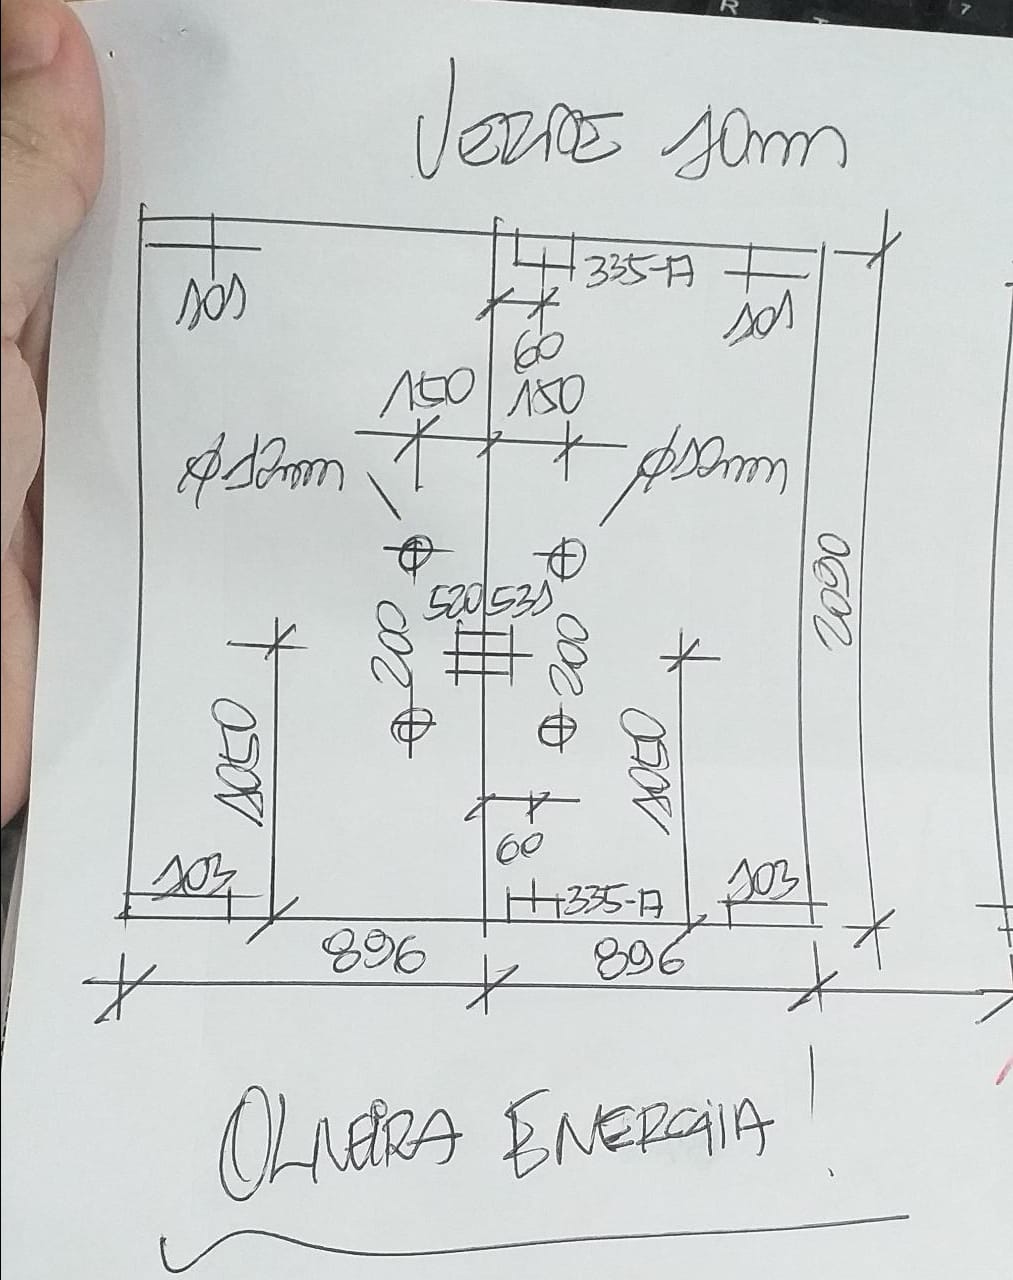 VERDE 10mm
335-A
101
101
60
150 150
Ø12mm
Ø12mm
520 531
200
200
2090
1050
1050
60
103
103
335-A
896
896
OLIVEIRA ENERGIA!